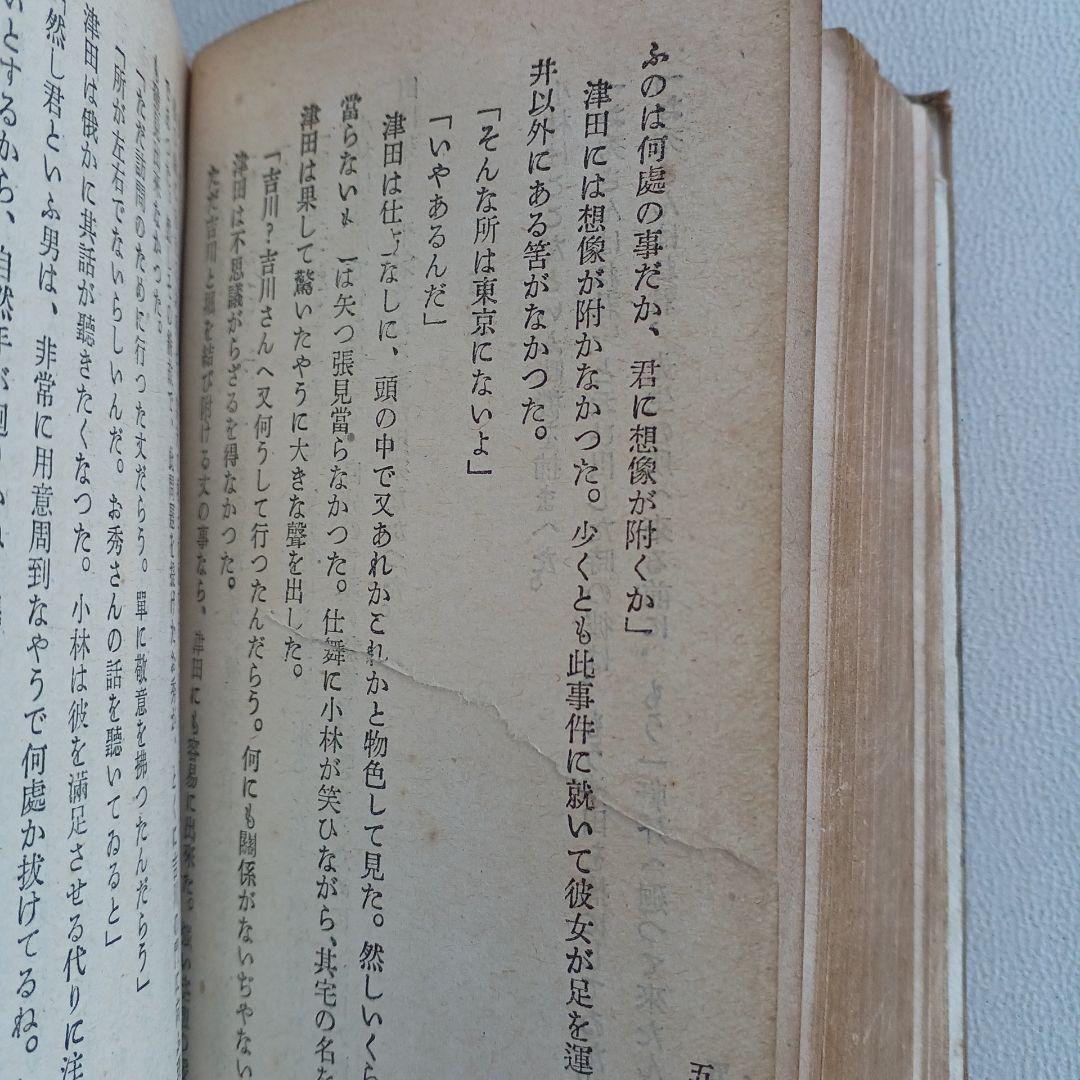 ふのは何處の事だか、君に想像が附くか」
津田には想像が附かなかつた。少くとも此事件に就いて彼女が足を運
井以外にある筈がなかつた。
「そんな所は東京にないよ」
「いやあるんだ」
津田は仕方なしに、頭の中で又あれかこれかと物色して見た。然しいくら
當らないも は矢つ張見當らなかつた。仕舞に小林が笑ひながら、其宅の名
津田は果して驚いたやうに大きな聲を出した。
「吉川?吉川さんへ又何うして行つたんだらう。何にも關係がないぢやない
津田は不思議がらざるを得なかつた。
ただ吉川と堀を結び附ける丈の事なら、津田にも容易に出來た。
出來なかつた。
「ただ訪問のために行つた丈だらう。單に敬意を拂つたんだらう」
「所が左右でないらしいんだ。お秀さんの話を聽いてゐると」
津田は俄かに其話が聽きたくなつた。小林は彼を滿足させる代りに注
「然し君といふ男は、非常に用意周到なやうで何處か拔けてるね。
いとするから、自然手が廻り
五